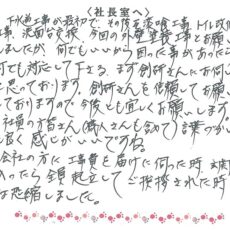 〈社長室へ〉
下水道工事が最初で、その後玄喚工事、トイレ改修
事、洗面台交換、今回の外壁塗装工事とお願い
しましたが、何でもいいから困った事があったら
何でも対応して下さる、まず創研さんにお伺い
と思っております。創研さんを信頼してお願い
おりますので今後とも宜しくお願いします。
社員の皆さん(職人さんも含めて)謙づか
良く感じがいいですね。
会社の方に工事費を届けに伺った時、玄関
入ったら全員起立してご挨拶された時
は恐縮しました。